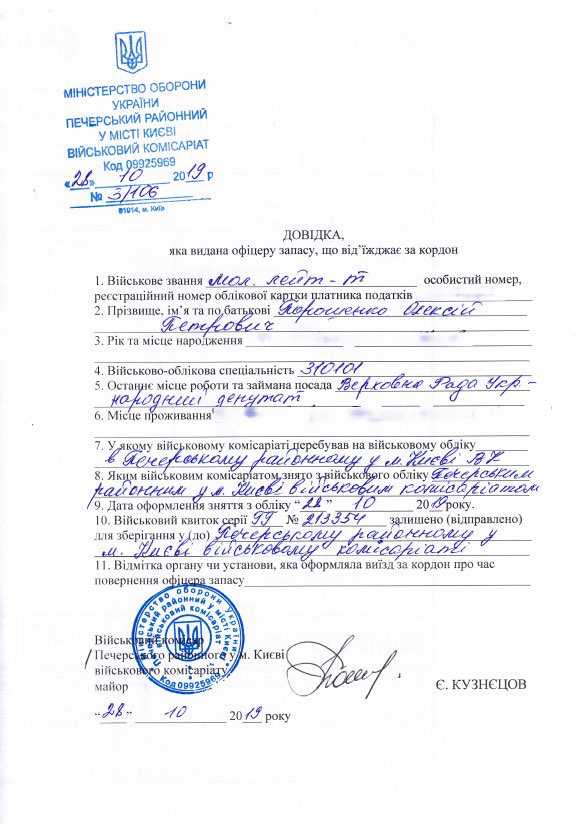 МІНІСТЕРСТВО ОБОРОНИ
УКРАЇНИ
ПЕЧЕРСЬКИЙ РАЙОННИЙ
У МІСТІ КИЄВІ
ВІЙСЬКОВИЙ КОМІСАРІАТ
Код 09925969
«28» 10 2019 р
№ 3/106
01014, м. Київ
ДОВІДКА,
яка видана офіцеру запасу, що від’їжджає за кордон
1. Військове звання мол. лейт-т особистий номер,
реєстраційний номер облікової картки платника податків
2. Прізвище, ім’я та по батькові Порошенко Олексій
Петрович
3. Рік та місце народження
4. Військово-облікова спеціальність 310101
5. Останнє місце роботи та займана посада Верховна Рада Укр-
народний депутат
6. Місце проживання
7. У якому військовому комісаріаті перебував на військовому обліку
в Печерському районному у м. Києві ВК
8. Яким військовим комісаріатом знято з військового обліку Печерським
районним у м. Києві військовим комісаріатом
9. Дата оформлення зняття з обліку “28” 10 2019 року.
10. Військовий квиток серії ГГ № 213354 залишено (відправлено)
для зберігання у (до) Печерському районному у
м. Києві військовому комісаріаті
11. Відмітка органу чи установи, яка оформляла виїзд за кордон про час
повернення офіцера запасу
Міністерство оборони України
Печерський районний у місті Києві
військовий комісаріат
Код 09925969
Військовий комісар
Печерського районного у м. Києві
військового комісаріату
майор Є. КУЗНЄЦОВ
“28” 10 2019 року